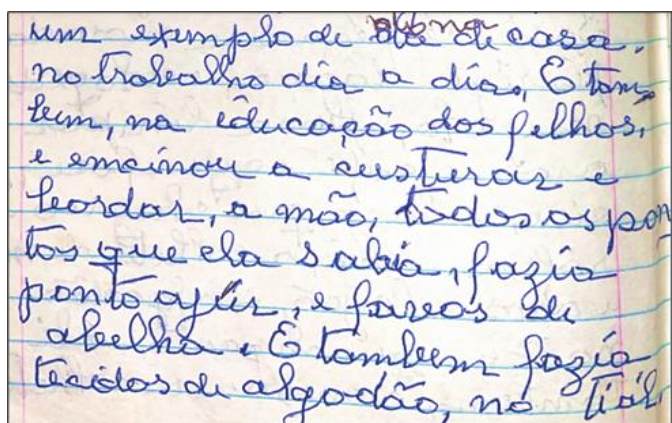 um exemplo de dona de casa.
no trabalho dia a dia. E tam
bem, na educação dos felhos,
e emcinou a custurar e
bordar, a mão, todos os pon
tos que ela sabia, fazia
ponto ajur, e favos de
abelha. E tambem fazia
tecidos de algodão, no tiál